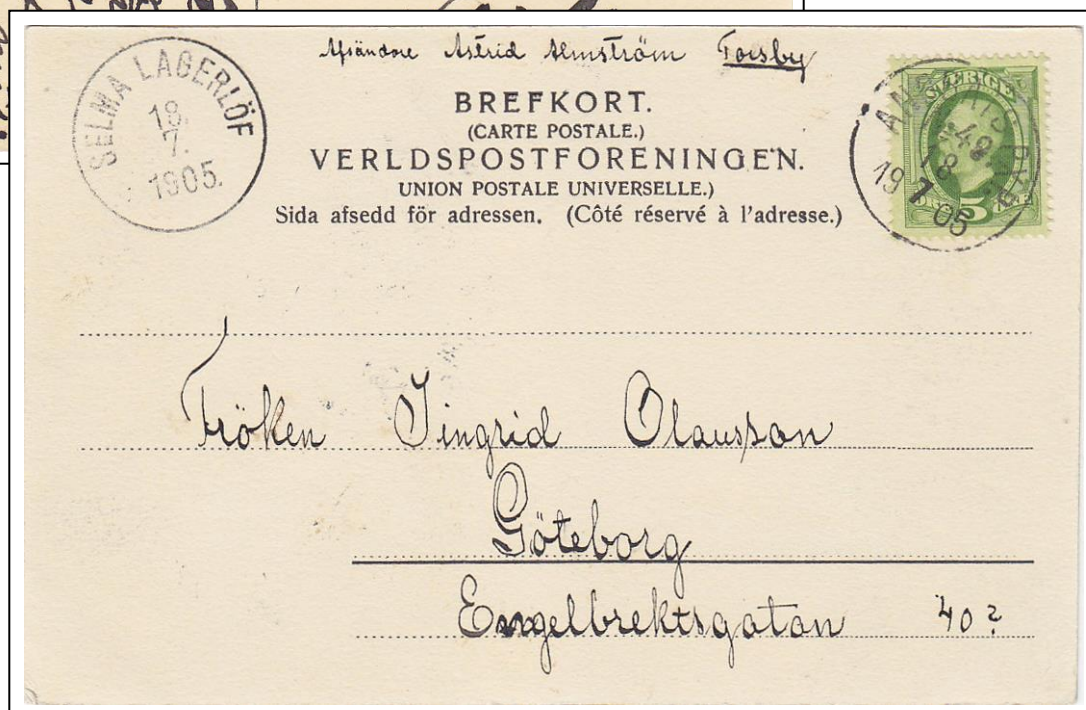 Afsändare Astrid Almström Torsby
SELMA LAGERLÖF
18.
7.
1905.
BREFKORT.
(CARTE POSTALE.)
VERLDSPOSTFORENINGEN.
UNION POSTALE UNIVERSELLE.)
Sida afsedd för adressen. (Côté réservé à l'adresse.)
SVERIGE
18
7
1905
5
Fröken Ingrid Olausson
Göteborg
Engelbrektsgatan 40?